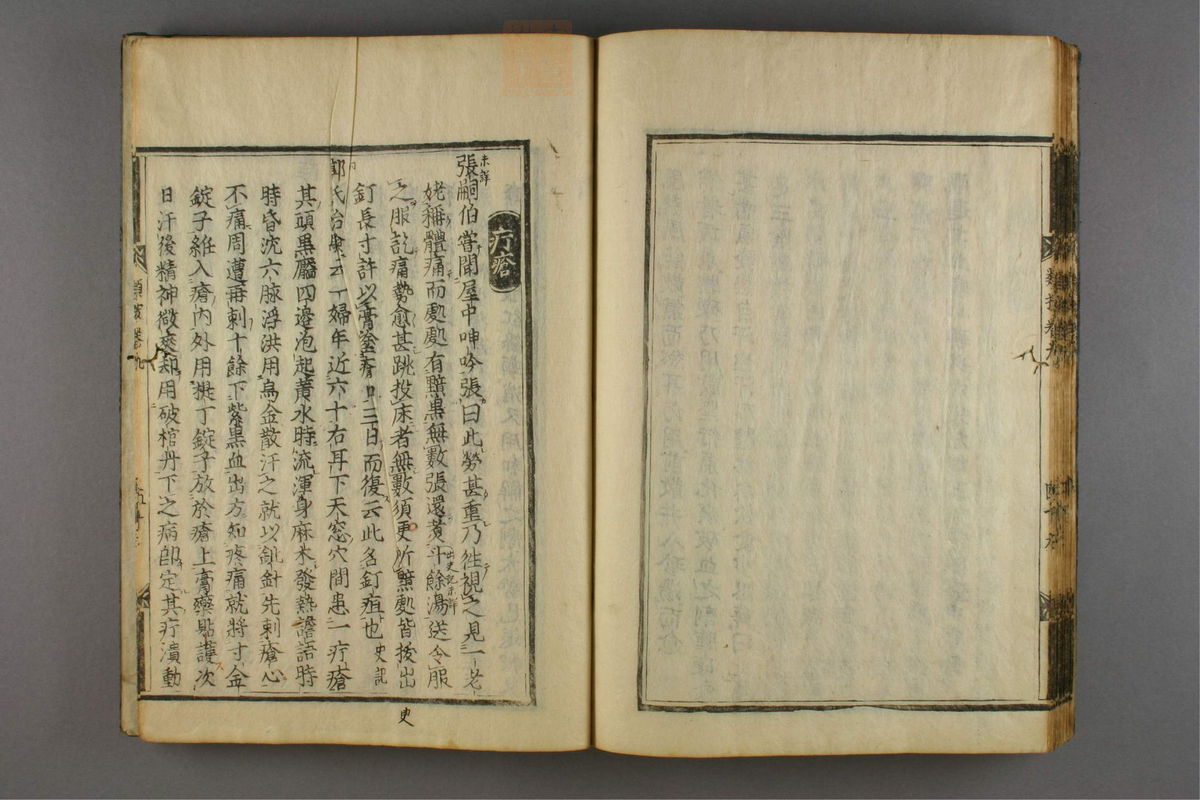 疔瘡
張嗣伯嘗聞屋中呻吟張曰此勞甚重乃往視之見一老
姥稱體痛而處處有黶黒無數張還煑斗餘湯送令服
之服訖痛勢愈甚跳投床者無數須更所黶處皆拔出
釘長寸許以膏塗瘡口三日而復云此名釘疽也 史記
郭氏治驗云一婦年近六十右耳下天窓穴間患一疔瘡
其頭黒靨四邊泡起黄水時流渾身麻木發熱譫語時
時昏沈六脉浮洪用烏金散汗之就以鈹針先刺瘡心
不痛周遭再刺十餘下紫黒血出方知疼痛就將寸金
錠子維入瘡內外用提丁錠子放於瘡上膏藥貼護次
日汗後精神微爽却用破棺丹下之病卽定其疔潰動
史